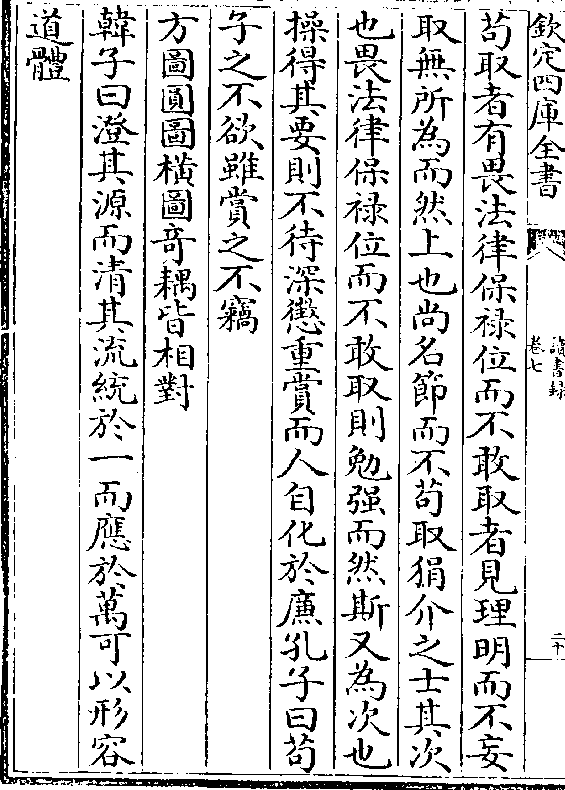 欽定四庫全書
讀書録
卷七
二十
苟取者有畏法律保禄位而不敢取者見理明而不妄
取無所為而然上也尚名節而不苟取狷介之士其次
也畏法律保禄位而不敢取則勉强而然斯又為次也
操得其要則不待深懲重賞而人自化於廉孔子曰苟
子之不欲雖賞之不竊
方圖圓圖橫圖竒耦皆相對
韓子曰澄其源而清其流統於一而應於萬可以形容
道體